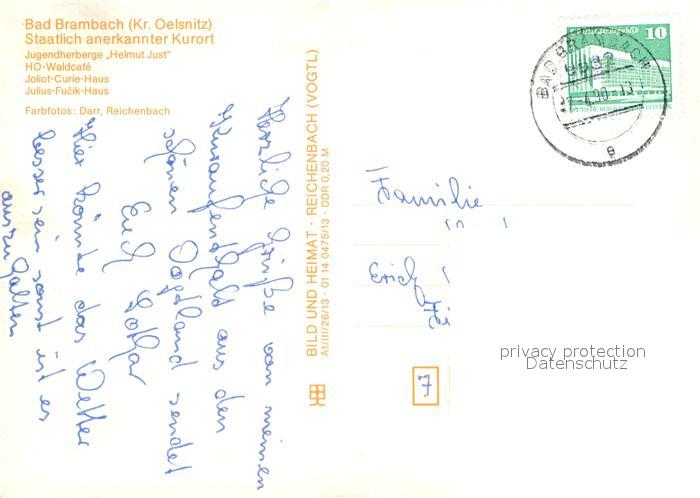 Bad Brambach (Kr. Oelsnitz)
Staatlich anerkannter Kurort
Jugendherberge „Helmut Just"
HO-Waldcafé
Joliot-Curie-Haus
Julius-Fučik-Haus
Farbfotos: Darr, Reichenbach
Herzliche Grüße von meinem
Kuraufenthalt aus dem
schönen Vogtland sendet
Euch Lothar
Hier könnte das Wetter
besser sein sonst ist es
auszuhalten
BILD UND HEIMAT · REICHENBACH (VOGTL)
A1/III/26/13 · 01 14 0475/13 · DDR 0,20 M
10
BAD BRAMBACH
9932
Familie
Erich
7
privacy protection
Datenschutz